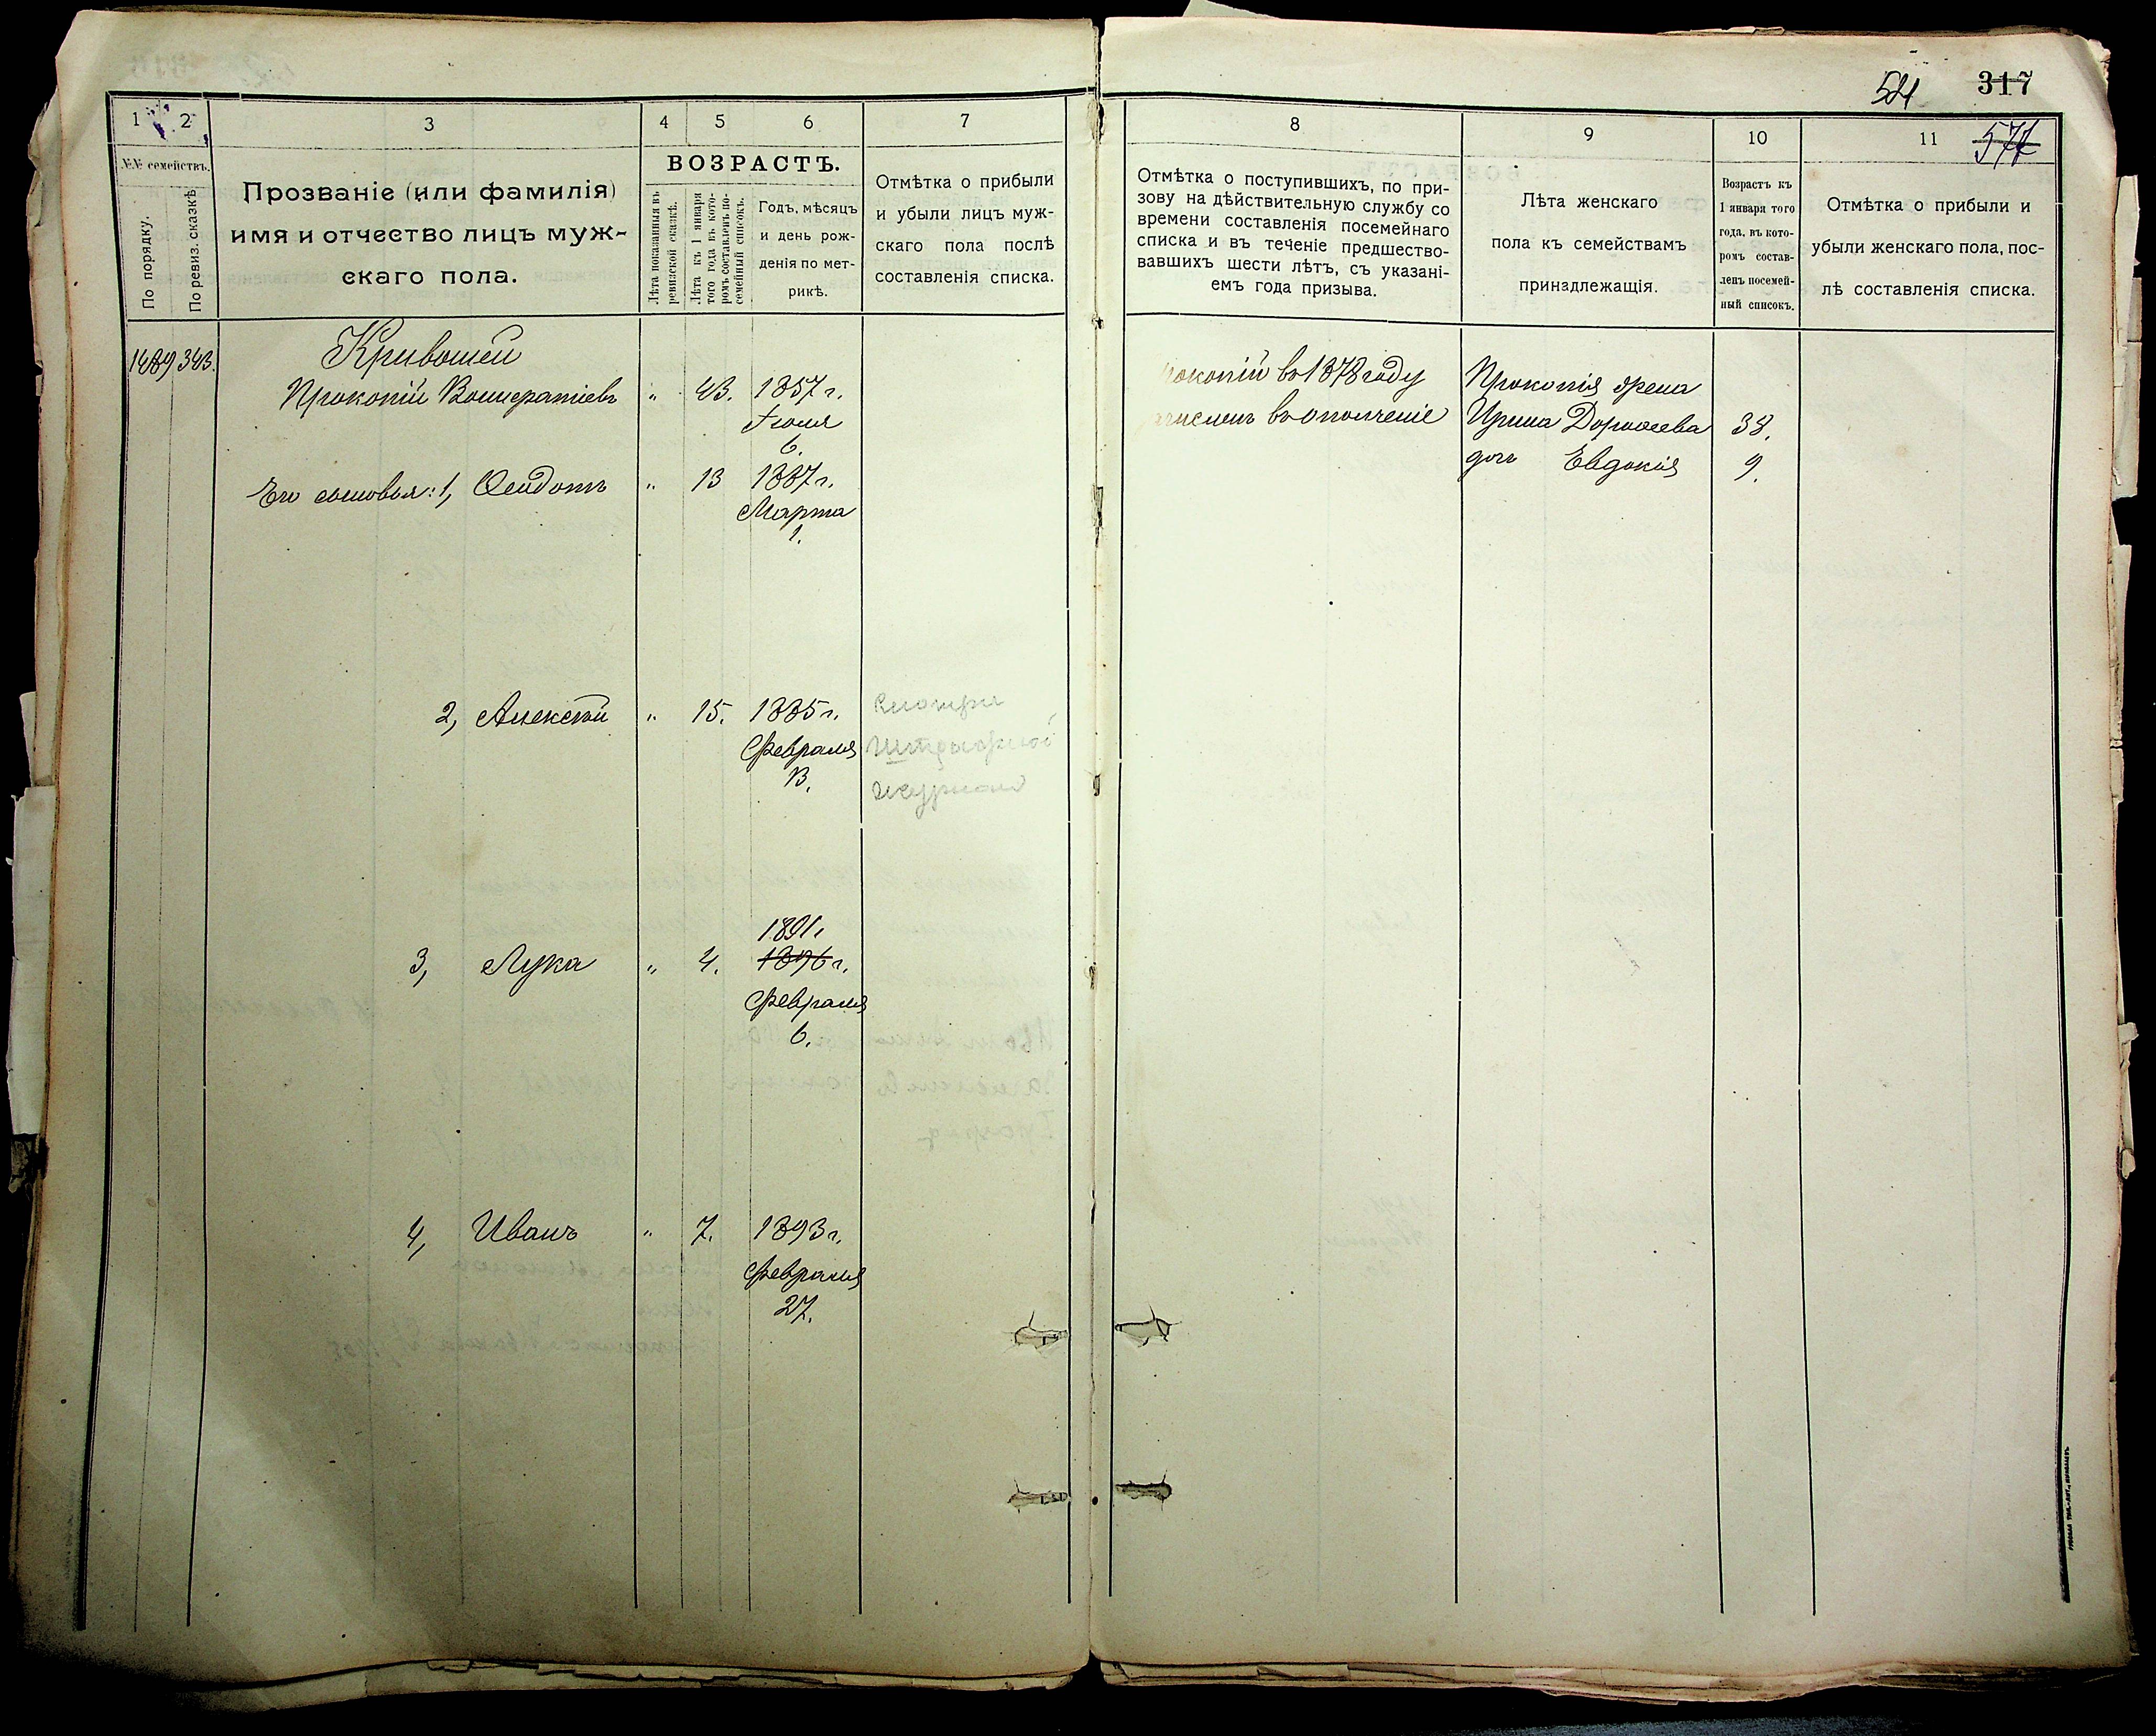 521 317
577
1 2 3 4 5 6 7
№№ семействъ.
По порядку.
По ревиз. сказкѣ
Прозваніе (или фамилія)
имя и отчество лицъ муж-
скаго пола.
ВОЗРАСТЪ.
Лѣта показанныя въ
ревизской сказкѣ.
Лѣта къ 1 января
того года къ кото-
ромъ составленъ по-
семейный списокъ.
Годъ, мѣсяцъ
и день рож-
денія по мет-
рикѣ.
Отмѣтка о прибыли
и убыли лицъ муж-
скаго пола послѣ
составленія списка.
1489 343. Кривошей
Прокопій " 43. 1857 г.
Іюля
6.
Его сыновья: 1, Ѳеодотъ " 13 1887 г.
Марта
1.
2, Алексѣй " 15. 1885 г.
Февраля
журнал
1891.
3, Лука " 4. 1896 г.
Февраля
6.
4, Иванъ " 7. 1893 г.
Февраля
27.
8 9 10 11
Отмѣтка о поступившихъ, по при-
зову на дѣйствительную службу со
времени составленія посемейнаго
списка и въ теченіе предшество-
вавшихъ шести лѣтъ, съ указані-
емъ года призыва.
Лѣта женскаго
пола къ семействамъ
принадлежащія.
Возрастъ къ
1 января того
года, въ кото-
ромъ состав-
ленъ посемей-
ный списокъ.
Отмѣтка о прибыли и
убыли женскаго пола, пос-
лѣ составленія списка.
рокопій въ 1878 году Прокопія жена
ачисленъ въ ополченіе Ирина Дорофеева 38.
дочь Евдокія 9.